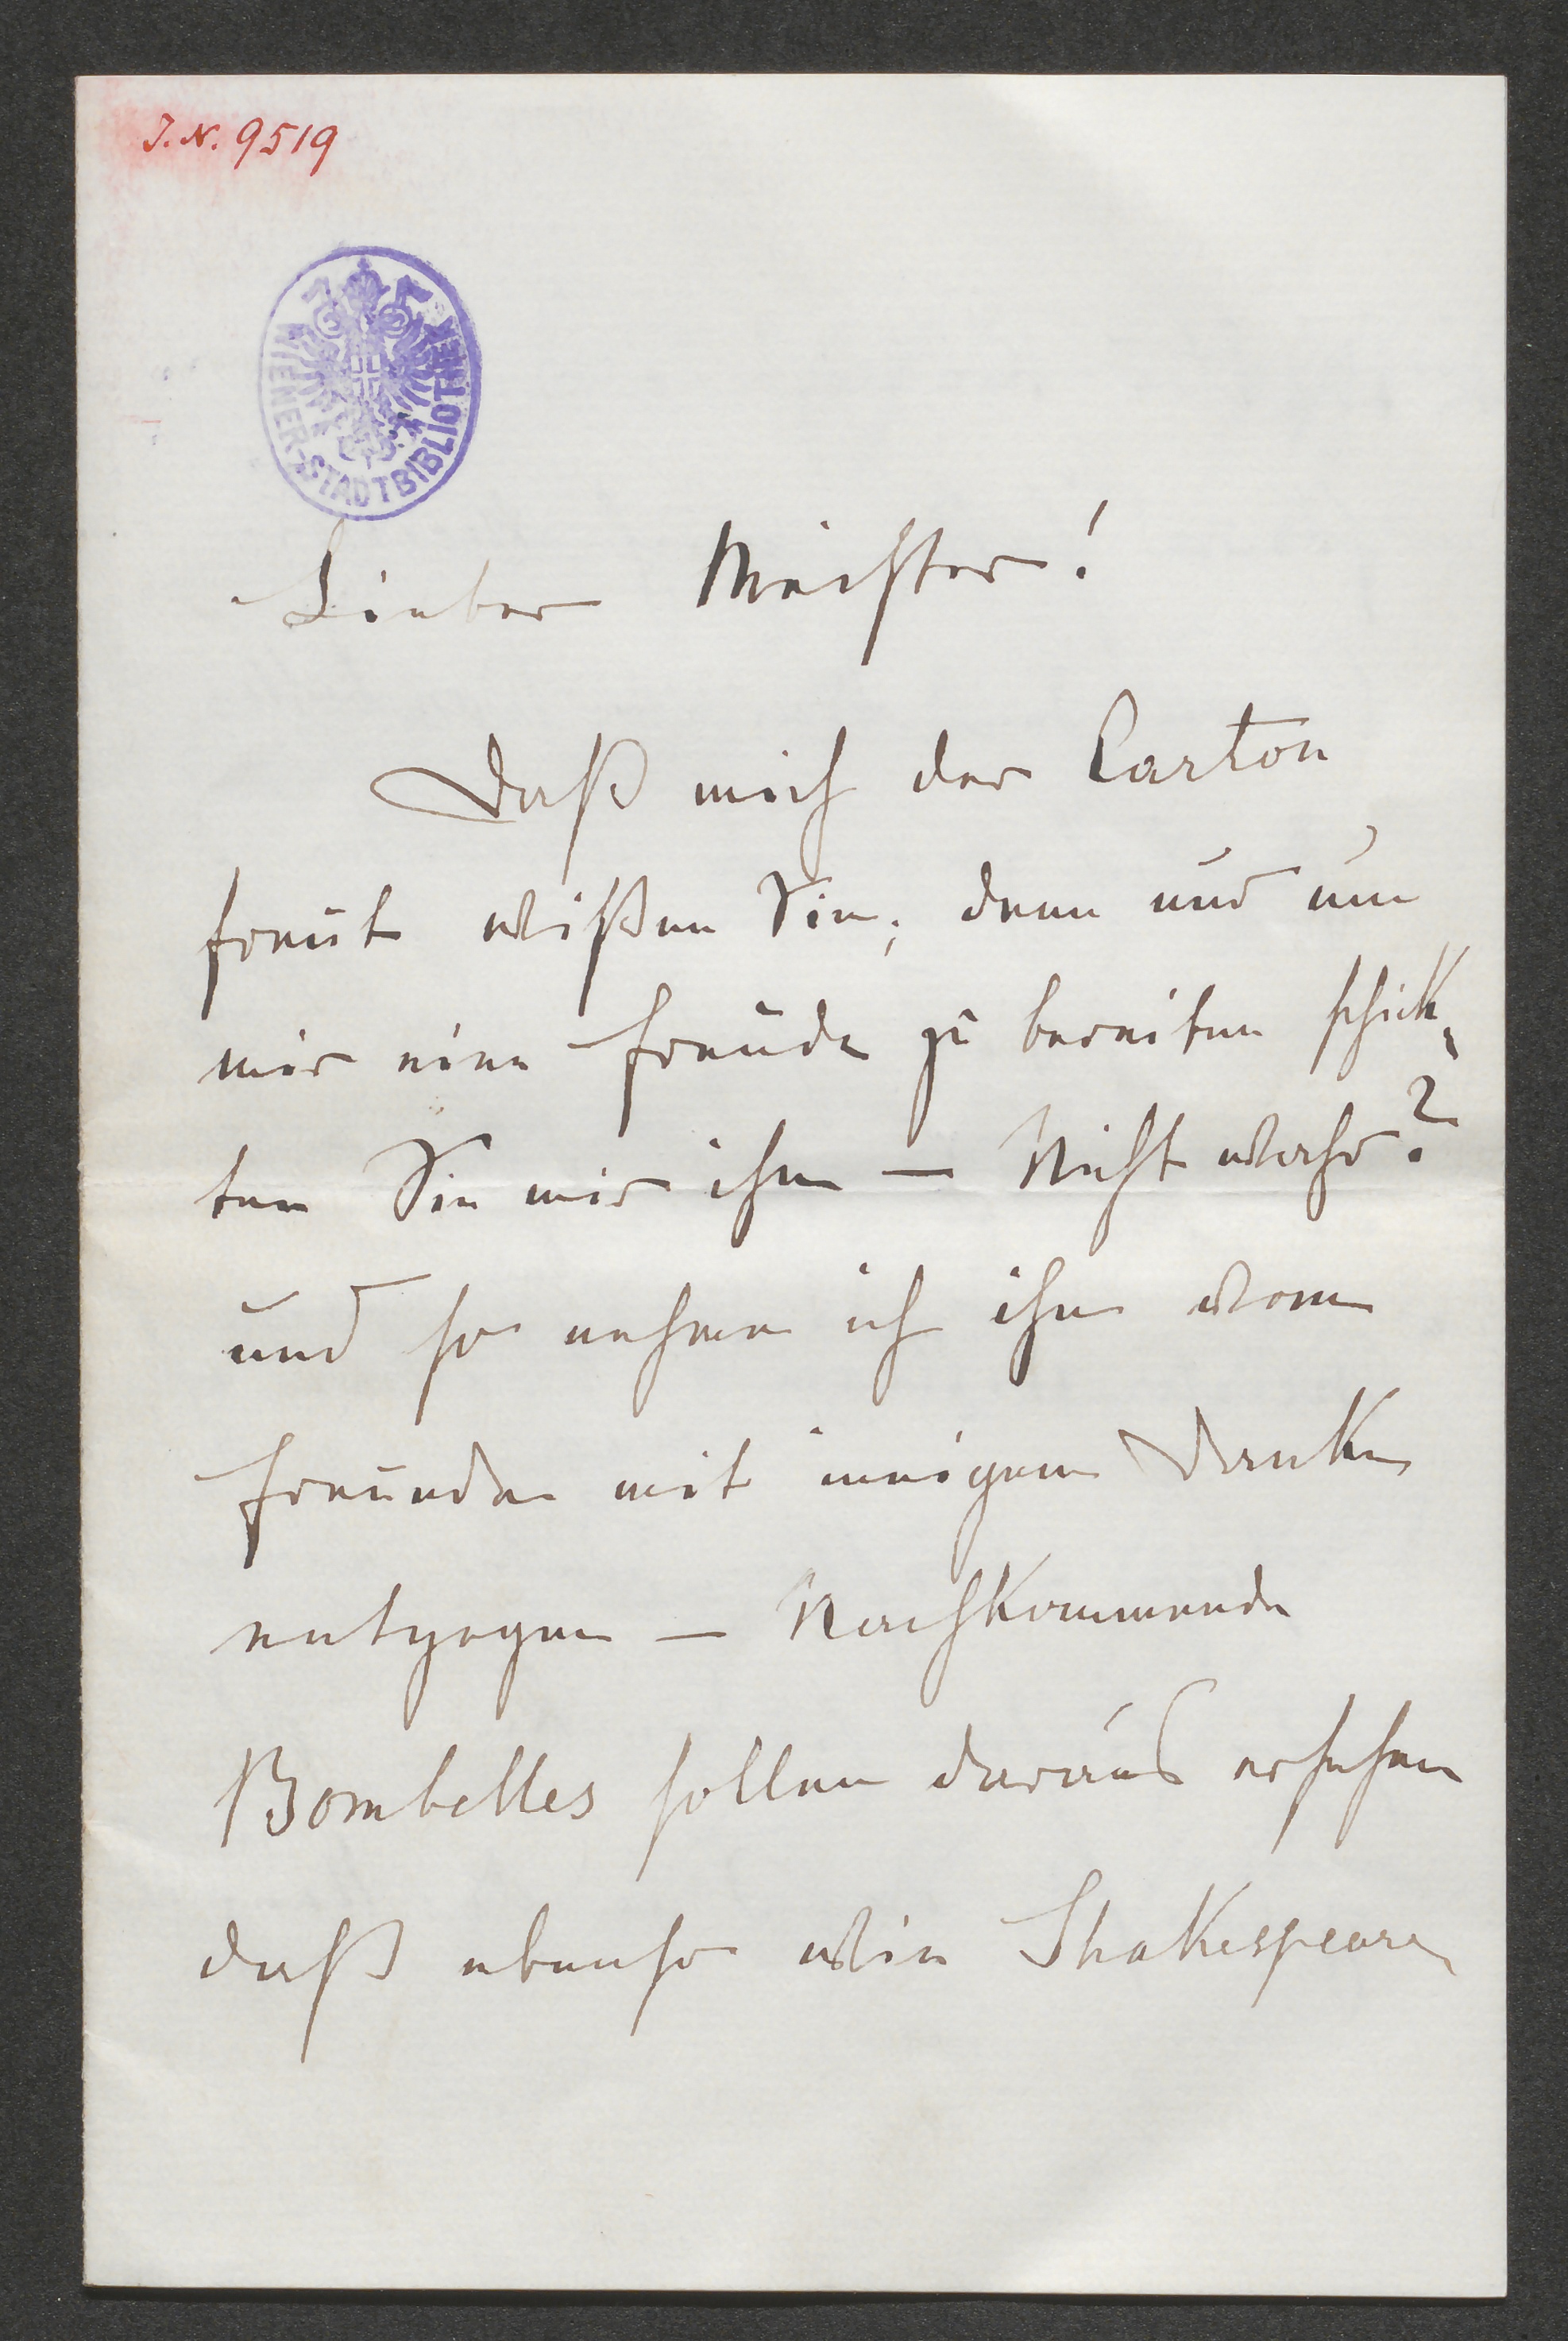 J. N. 9519
WIENER-STADTBIBLIOTHEK
Lieber Meister!
Daß mich der Carton
freut wißen Sie; denn nur um
mir eine Freude zu bereiten schick-
ten Sie mir ihn – Nicht wahr?
und so nehme ich ihn vom
Freunde mit innigem Danke
entgegen – Nachkommende
Bombelles sollen daraus ersehen
daß ebenso wie Shakespeare